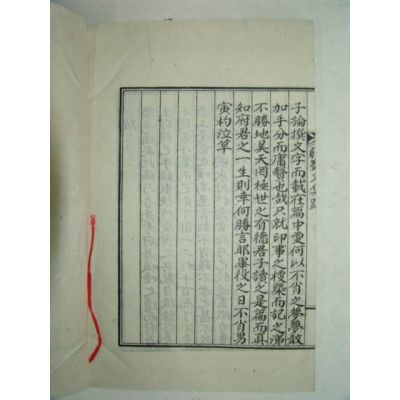 文集跋
子掄撰文字而載在篇中爰何以不肖之夢夢敢
加手分而庸贅也哉只就印事之梗槩而記之涕
不勝地昊天罔極世之有德君子讀之是篇而眞
知府君之一生則幸何勝言耶畢役之日不肖男
寅杓泣草